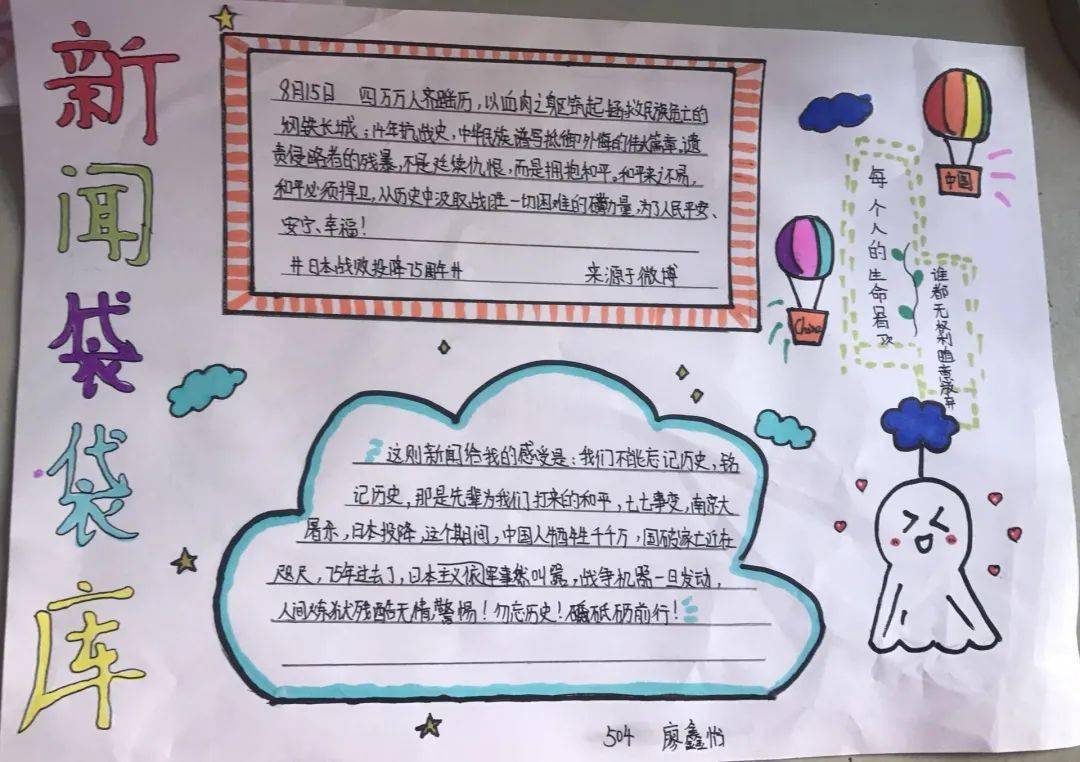 新闻袋袋库
8月15日 四万万人齐蹈厉，以血肉之躯筑起拯救民族危亡的
钢铁长城；14年抗战史，中华民族谱写抵御外侮的伟大篇章，谴
责侵略者的残暴，不是延续仇恨，而是拥抱和平。和平来之不易，
和平必须捍卫，从历史中汲取战胜一切困难的磅礴力量，为了人民平安、
安宁、幸福！
#日本战败投降75周年# 来源于微博
中国
China
每个人的生命
谁都无权利随意
这则新闻给我的感受是：我们不能忘记历史，铭
记历史，那是先辈为我们打来的和平，七七事变，南京大
屠杀，日本投降，这个期间，中国人牺牲千千万，国破家亡近在
咫尺，75年过去了，日本主义依军事然叫嚣，战争机器一旦发动，
人间炼狱残酷无情，警惕！勿忘历史！砥砺前行！
504 廖鑫怡